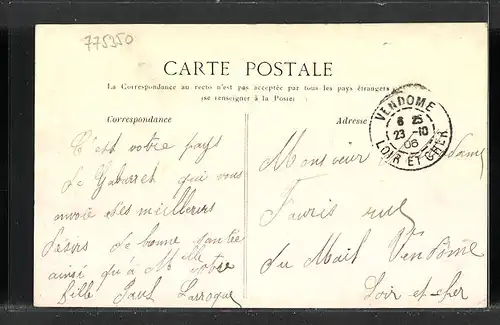 775350
CARTE POSTALE
La Correspondance au recto n'est pas acceptée par tous les pays étrangers
(se renseigner à la Poste)
Correspondance
Adresse
VENDOME
6 25
23 -10
06
LOIR ET CHER
C'est votre pays
de Gabarret qui vous
envoie ses meilleurs
désirs de bonne santée
ainsi qu'à Mlle votre
fille Paul Larroque
Monsieur
rue
du Mail Vendôme
Loir et cher